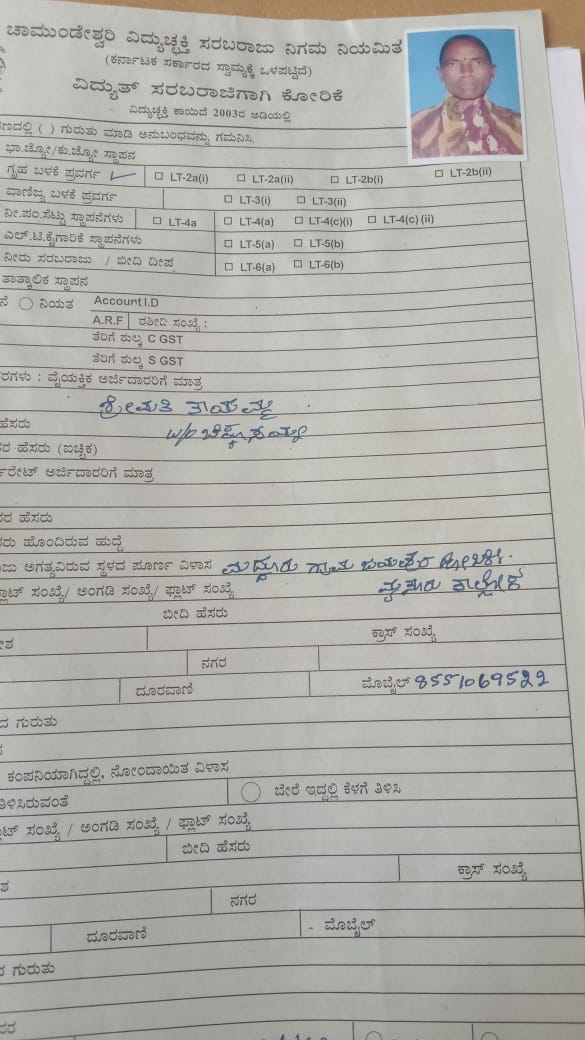 ಚಾಮುಂಡೇಶ್ವರಿ ವಿದ್ಯುಚ್ಛಕ್ತಿ ಸರಬರಾಜು ನಿಗಮ ನಿಯಮಿತ
(ಕರ್ನಾಟಕ ಸರ್ಕಾರದ ಸ್ವಾಮ್ಯಕ್ಕೆ ಒಳಪಟ್ಟಿದೆ)
ವಿದ್ಯುತ್ ಸರಬರಾಜಿಗಾಗಿ ಕೋರಿಕೆ
ವಿದ್ಯುಚ್ಛಕ್ತಿ ಕಾಯಿದೆ 2003ರ ಅಡಿಯಲ್ಲಿ
ಣದಲ್ಲಿ ( ) ಗುರುತು ಮಾಡಿ ಅನುಬಂಧವನ್ನು ಗಮನಿಸಿ.
ಭಾ.ಜ್ಯೋ/ಕು.ಜ್ಯೋ ಸ್ಥಾಪನ
ಗೃಹ ಬಳಕೆ ಪ್ರವರ್ಗ ✓ □ LT-2a(i) □ LT-2a(ii) □ LT-2b(i) □ LT-2b(ii)
ವಾಣಿಜ್ಯ ಬಳಕೆ ಪ್ರವರ್ಗ □ LT-3(i) □ LT-3(ii)
ನೀ.ಪಂ.ಸೆಟ್ಟು ಸ್ಥಾಪನೆಗಳು □ LT-4a □ LT-4(a) □ LT-4(c)(i) □ LT-4(c) (ii)
ಎಲ್.ಟಿ.ಕೈಗಾರಿಕೆ ಸ್ಥಾಪನೆಗಳು □ LT-5(a) □ LT-5(b)
ನೀರು ಸರಬರಾಜು / ಬೀದಿ ದೀಪ □ LT-6(a) □ LT-6(b)
ತಾತ್ಕಾಲಿಕ ಸ್ಥಾಪನ
ನೆ ○ ನಿಯತ Account I.D
A.R.F ರಶೀದಿ ಸಂಖ್ಯೆ :
ತೆರಿಗೆ ಶುಲ್ಕ C GST
ತೆರಿಗೆ ಶುಲ್ಕ S GST
ರಗಳು : ವೈಯಕ್ತಿಕ ಅರ್ಜಿದಾರರಿಗೆ ಮಾತ್ರ
ಶ್ರೀಮತಿ ತಾಯಮ್ಮ
ಹೆಸರು W/o
ರ ಹೆಸರು (ಐಚ್ಛಿಕ)
ರೇಟ್ ಅರ್ಜಿದಾರರಿಗೆ ಮಾತ್ರ
ರ ಹೆಸರು
ರು ಹೊಂದಿರುವ ಹುದ್ದೆ
ಜು ಅಗತ್ಯವಿರುವ ಸ್ಥಳದ ಪೂರ್ಣ ವಿಳಾಸ ಮದ್ದೂರು ಗ್ರಾಮ ಹೋಬಳಿ.
ಪ್ಲಾಟ್ ಸಂಖ್ಯೆ/ ಅಂಗಡಿ ಸಂಖ್ಯೆ/ ಫ್ಲಾಟ್ ಸಂಖ್ಯೆ ಮೈಸೂರು ತಾಲ್ಲೋಕ
ಬೀದಿ ಹೆಸರು
ಶ ಕ್ರಾಸ್ ಸಂಖ್ಯೆ
ನಗರ
ದೂರವಾಣಿ ಮೊಬೈಲ್ 8551069522
ದ ಗುರುತು
ಕಂಪನಿಯಾಗಿದ್ದಲ್ಲಿ, ನೋಂದಾಯಿತ ವಿಳಾಸ
ತಿಳಿಸಿರುವಂತೆ ○ ಬೇರೆ ಇದ್ದಲ್ಲಿ ಕೆಳಗೆ ತಿಳಿಸಿ
ಾಟ್ ಸಂಖ್ಯೆ / ಅಂಗಡಿ ಸಂಖ್ಯೆ / ಫ್ಲಾಟ್ ಸಂಖ್ಯೆ
ಬೀದಿ ಹೆಸರು
ಶ ಕ್ರಾಸ್ ಸಂಖ್ಯೆ
ನಗರ
ದೂರವಾಣಿ ಮೊಬೈಲ್
ದ ಗುರುತು